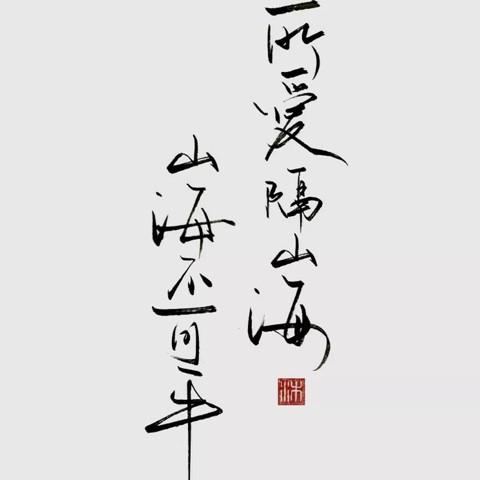 所愛隔山海
山海不可平
沐